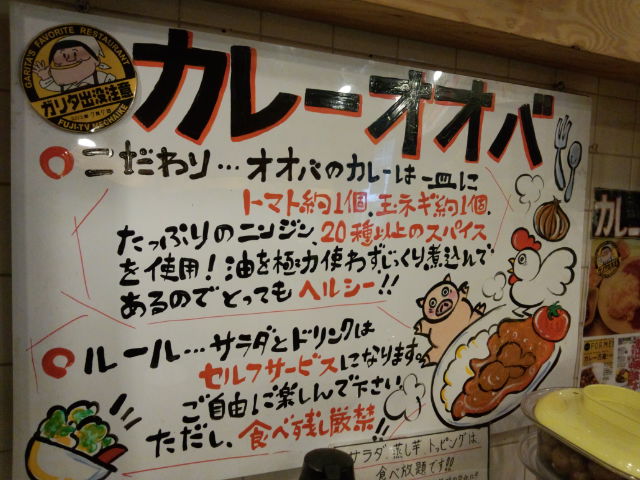 GARITA'S FAVORITE RESTAURANT
ガリタ出没注意
FUJI-TV MECHAIKE
カレーオオバ
こだわり…オオバのカレーは一皿に
トマト約1個、玉ネギ約1個、
たっぷりのニンジン、20種以上のスパイス
を使用!油を極力使わずじっくり煮込んで
あるのでとってもヘルシー!!
ルール…サラダとドリンクは
セルフサービスになります。
ご自由に楽しんで下さい
ただし、食べ残し厳禁!!
サラダ、蒸し芋トッピングは
食べ放題です!!
カレー